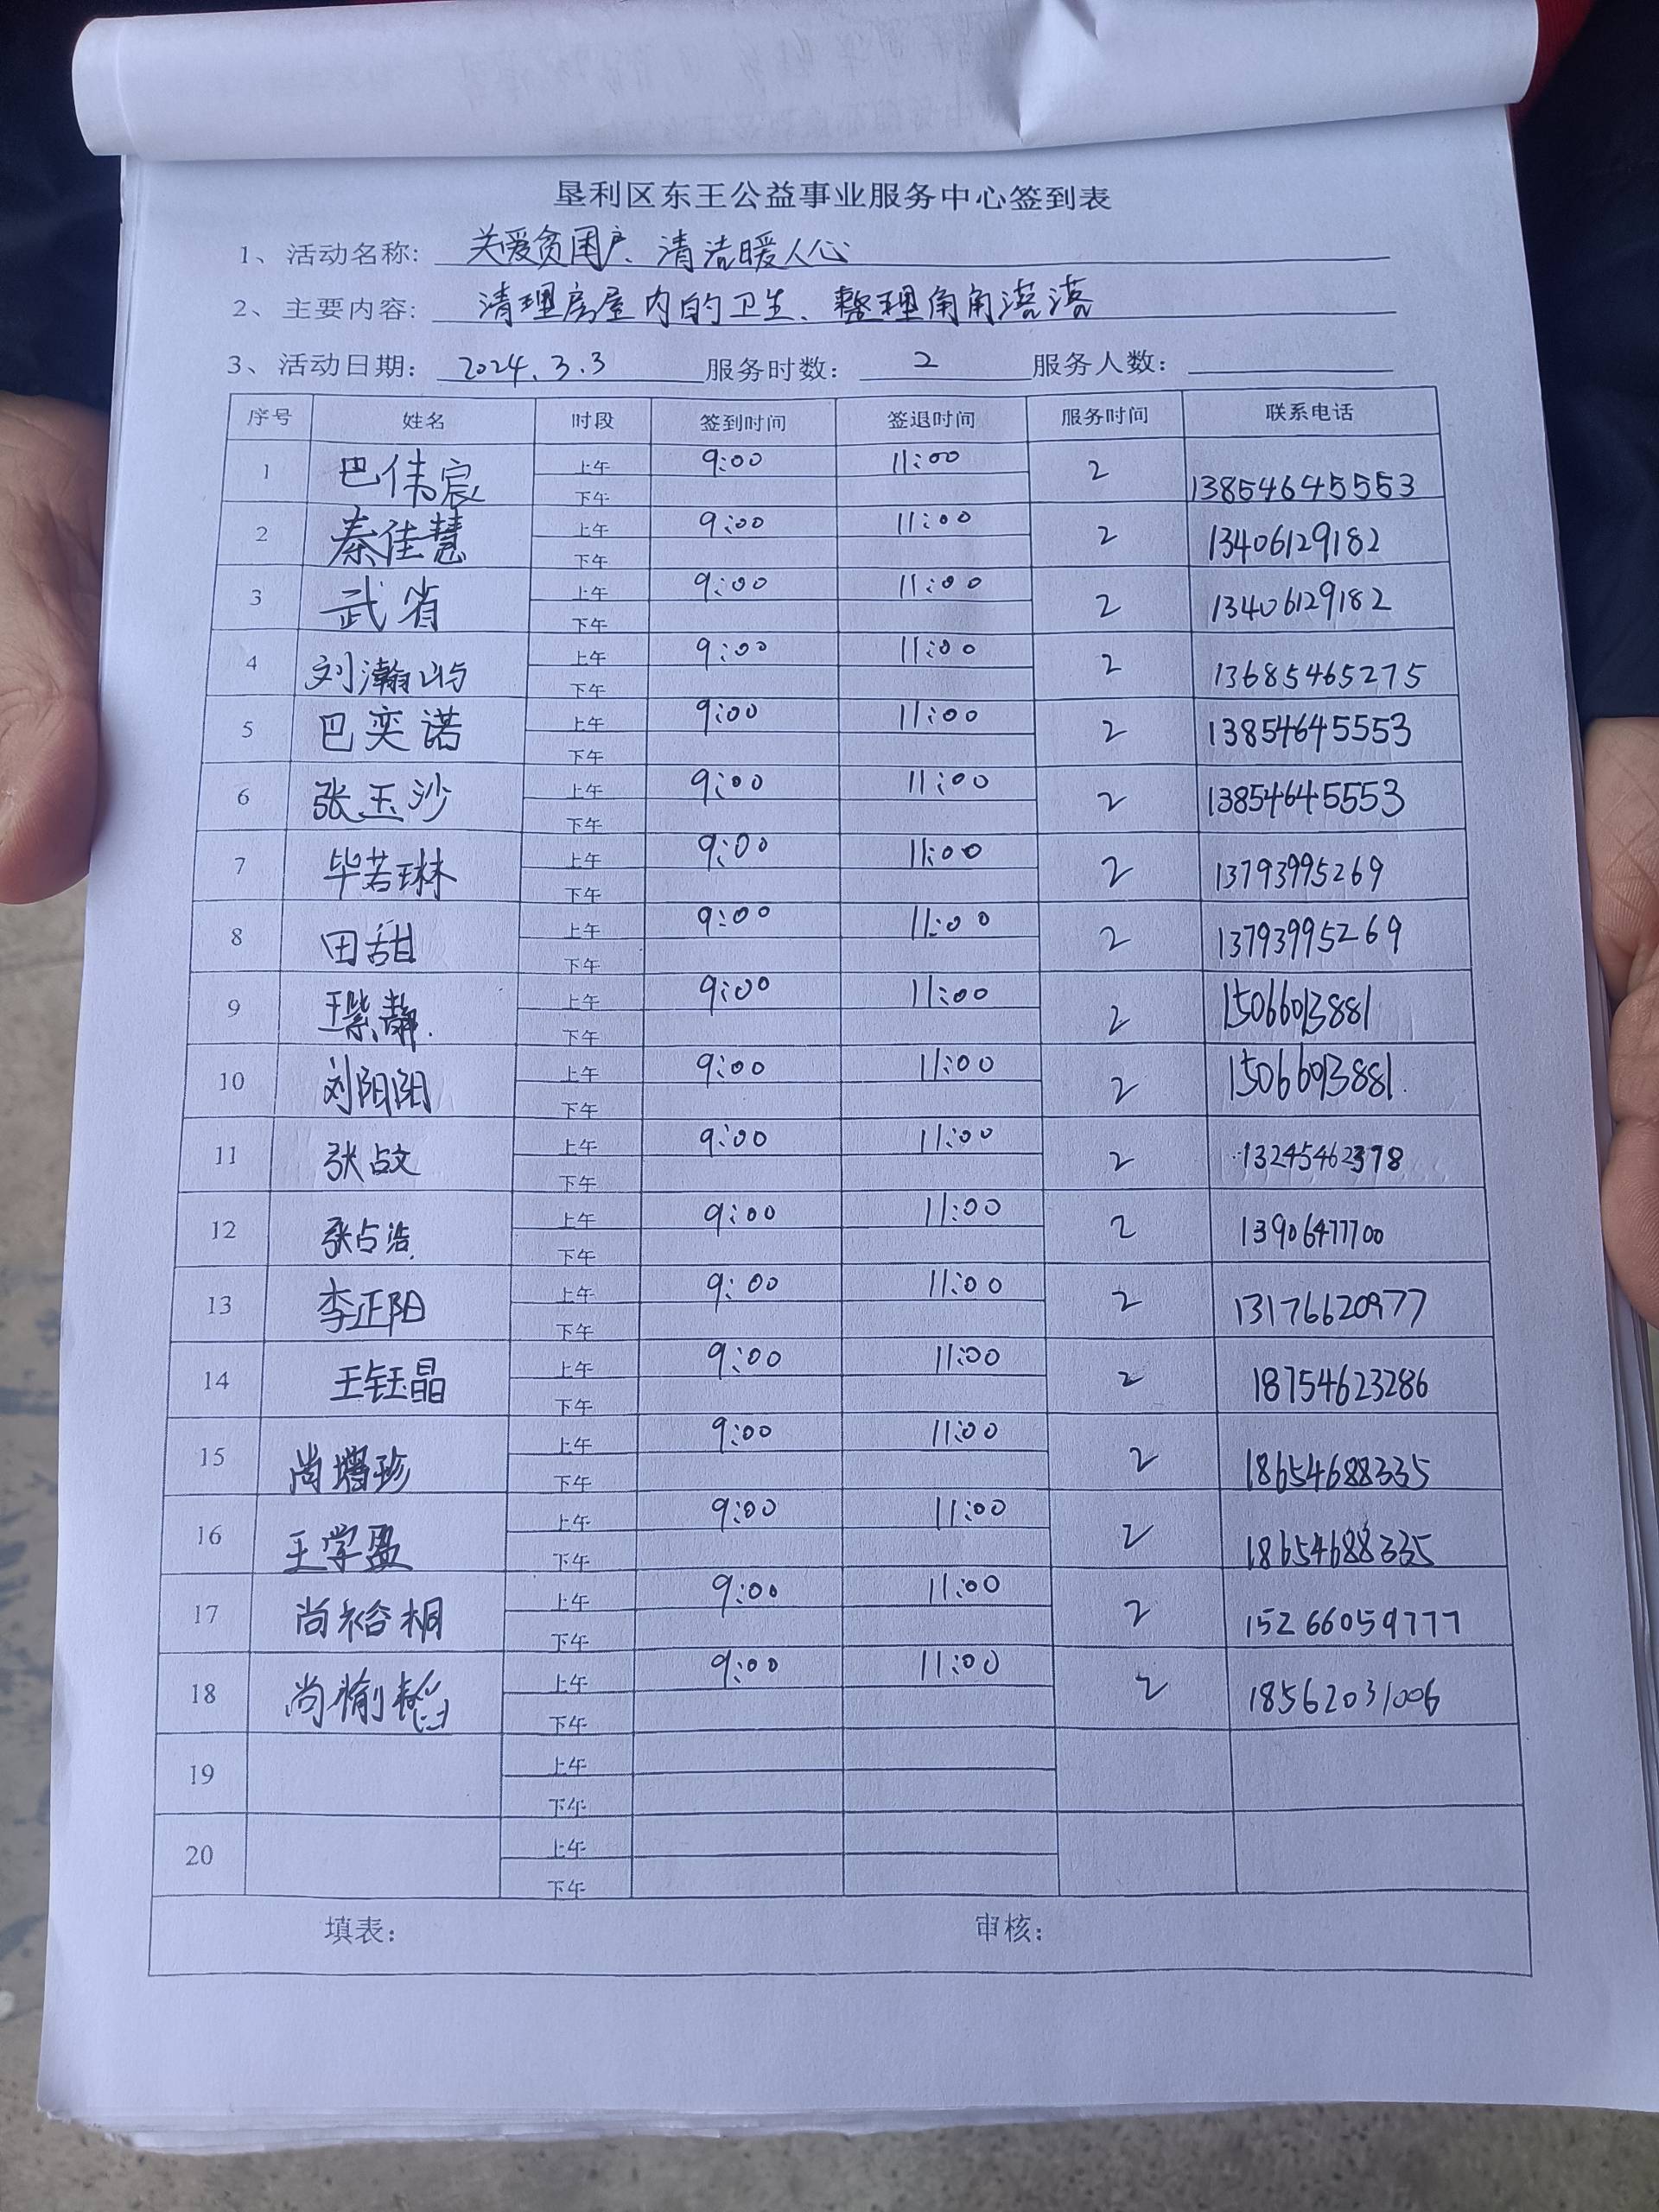 垦利区东王公益事业服务中心签到表
1、活动名称: 关爱贫困户、清洁暖人心
2、主要内容: 清理房屋内的卫生、整理角角落落
3、活动日期: 2024.3.3 服务时数: 2 服务人数:
序号 姓名 时段 签到时间 签退时间 服务时间 联系电话
1 巴伟宸 上午 9:00 11:00 2 13854645553
下午
2 秦佳慧 上午 9:00 11:00 2 13406129182
下午
3 武省 上午 9:00 11:00 2 13406129182
下午
4 刘瀚屿 上午 9:00 11:00 2 13685465275
下午
5 巴奕诺 上午 9:00 11:00 2 13854645553
下午
6 张玉沙 上午 9:00 11:00 2 13854645553
下午
7 毕若琳 上午 9:00 11:00 2 13793995269
下午
8 田甜 上午 9:00 11:00 2 13793995269
下午
9 王紫静 上午 9:00 11:00 2 15066013881
下午
10 刘阳阳 上午 9:00 11:00 2 15066013881
下午
11 张占文 上午 9:00 11:00 2 13245462378
下午
12 张占浩 上午 9:00 11:00 2 13906477700
下午
13 李正阳 上午 9:00 11:00 2 13176620977
下午
14 王钰晶 上午 9:00 11:00 2 18754623286
下午
15 尚增珍 上午 9:00 11:00 2 18654688335
下午
16 王学盈 上午 9:00 11:00 2 18654688335
下午
17 尚裕桐 上午 9:00 11:00 2 15266059777
下午
18 尚愉 上午 9:00 11:00 2 18562031006
下午
19 上午
下午
20 上午
下午
填表: 审核: